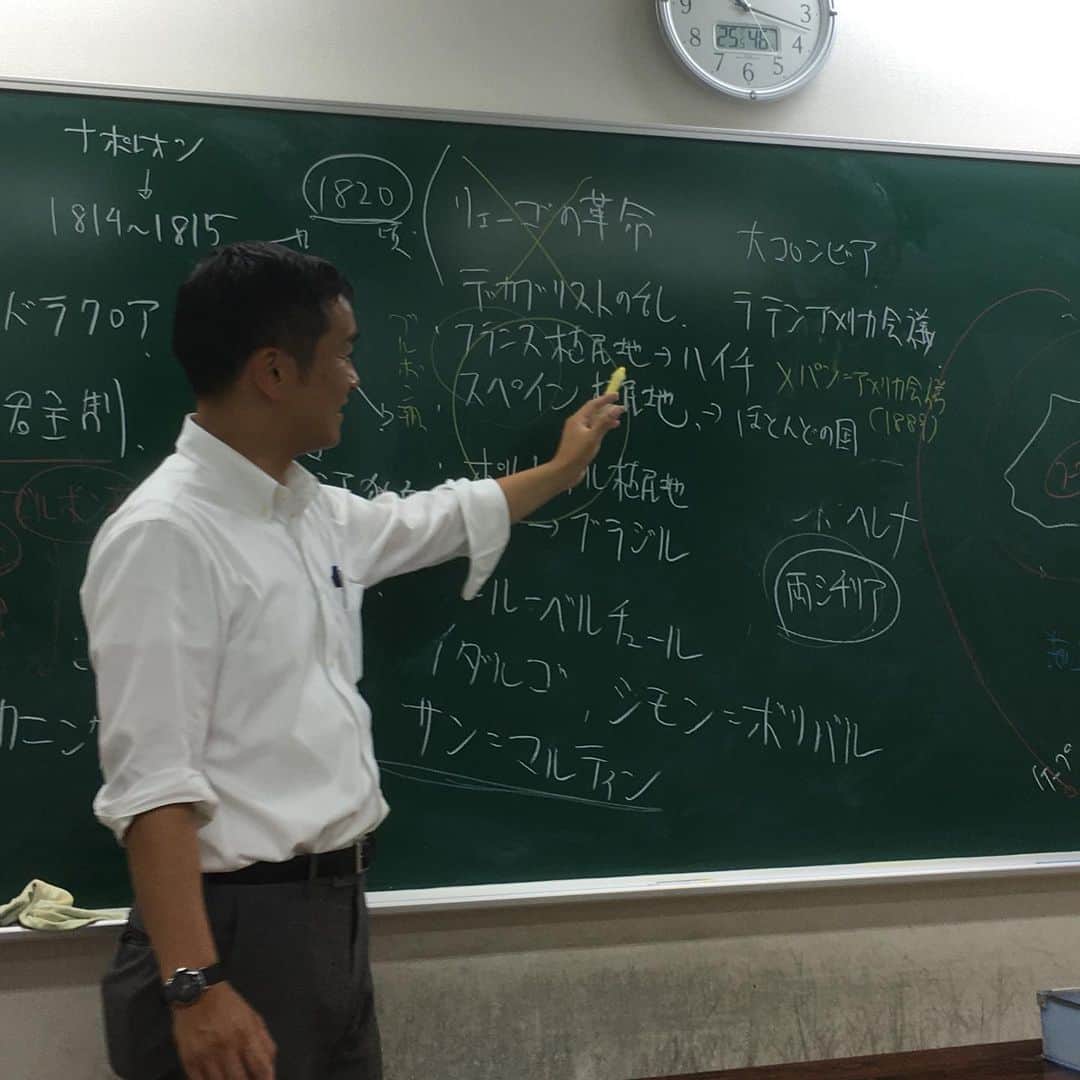 9 3
8 4
7 6 5
25 46
ナポレオン
↓
1814~1815 →
1820
頃
リエーゴの革命
デカブリストの乱
フランス植民地→ハイチ
スペイン植民地→ほとんどの国
植民地
→ブラジル
大コロンビア
ラテンアメリカ会議
×パン=アメリカ会議
ドラクロア
君主制
ブルボン
ヘレナ
両シチリア
ルーベルチュール
イダルゴ
シモン=ボリバル
サン=マルティン
カニング